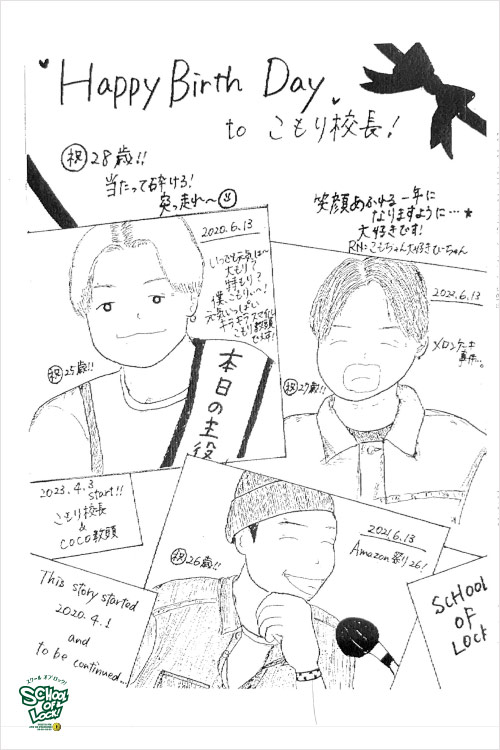 Happy Birth Day
to こもり校長!
祝 28歳!!
当たって砕けろ!
突っ走れ〜
笑顔あふれる一年に
なりますように…★
大好きです!
RN:こもちゃん大好きむーちゃん
2020.6.13
いつでも元気は〜
大もり?
特もり?
僕、こもりぃ〜!
元気いっぱい
キラキラスマイル
こもり教頭
です!
祝 25歳!!
本日の主役
2022.6.13
メロンケーキ
事件…。
祝 27歳!!
2023.4.3
start!!
こもり校長
&
COCO教頭
2021.6.13
Amazon祭り26!
祝 26歳!!
This story started
2020.4.1
and
to be continued...
SCHOOL
OF
LOCK
スクール オブ ロック!
SCHOOL
OF
LOCK!